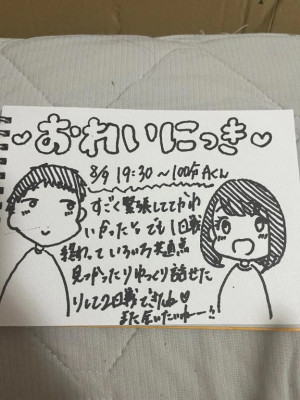 ♡おれいにっき♡
8/9 19:30～100分Aくん
すごく緊張しててかわ
いかった♡でも1回戦
終わっていろいろ共通点
見つかったりゆっくり話せた
りして2回戦できたね♡
また会いたいねー!!